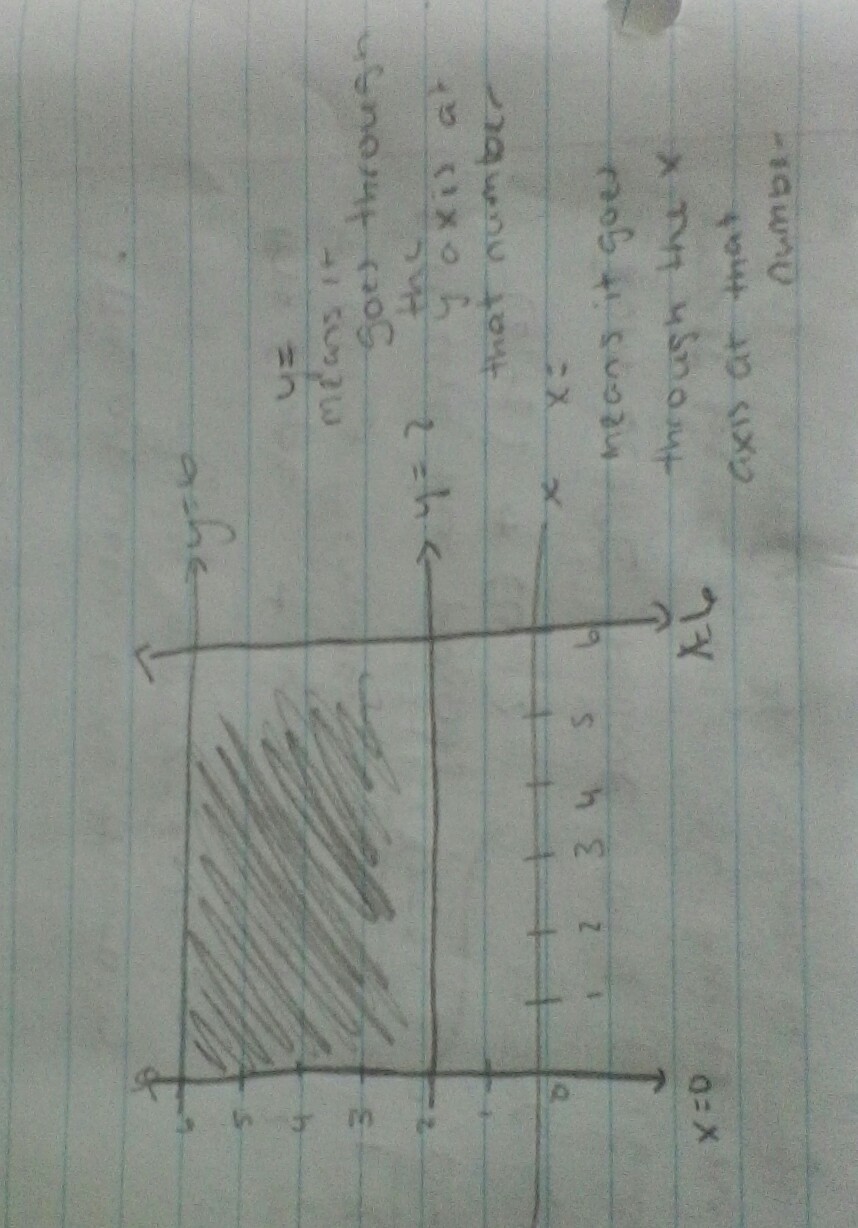 y=
means it
goes through
the
y axis at
that number
x=
means it goes
through the x
axis at that
number
y=6
y=2
x
6
5
4
3
2
1
0
1 2 3 4 5 6
x=0
x=6